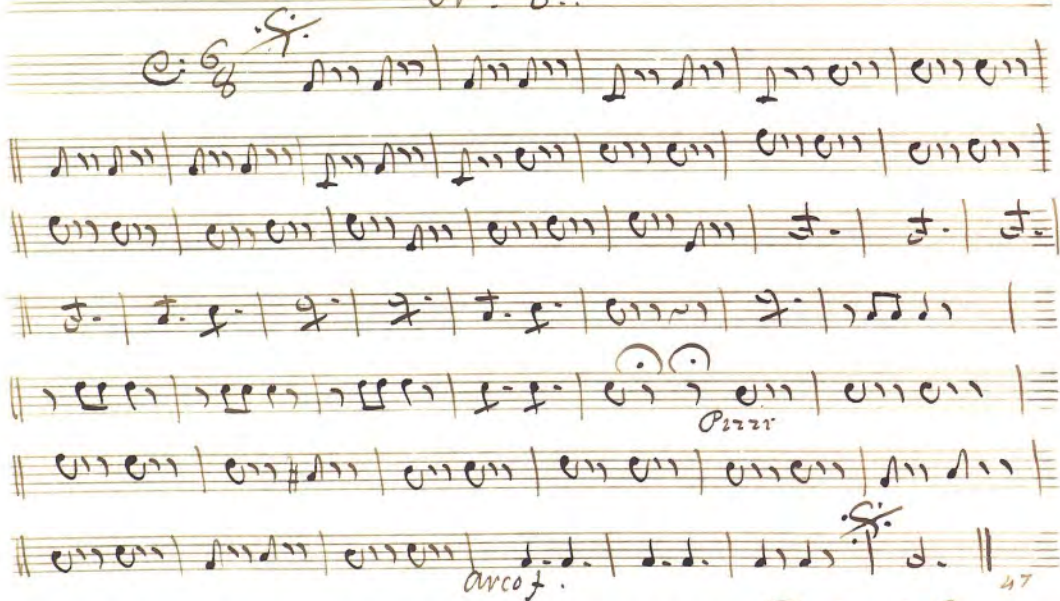 6
8
Pizzi
arco f.
47